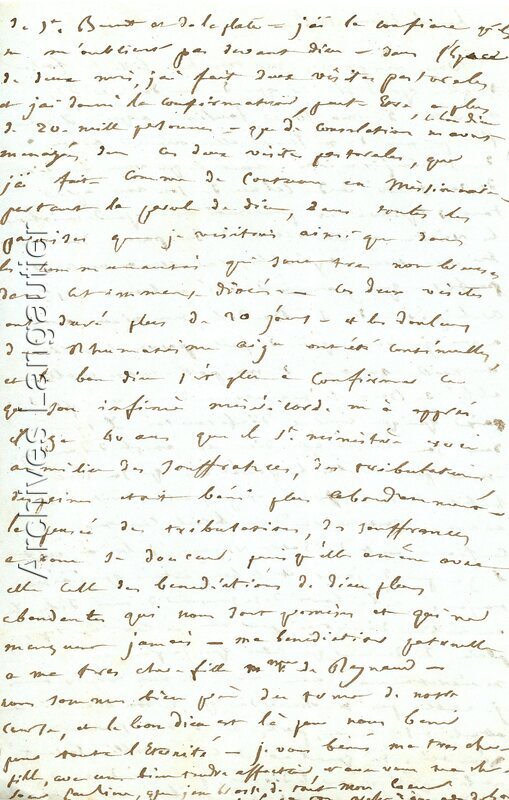 de St. Benoit et de la plata = j'ai la confiance qu'ils
ne m'oublient pas devant dieu = dans l'espace
de deux mois, j'ai fait deux visites pastorales
et j'ai donné la confirmation, peut être, a plus
de 20 mille personnes = que de consolations m'avait
ménagées dans ces deux visites pastorales, que
j'ai fait comme de coutume en Missionnaire
portant la parole de dieu, dans toutes les
paroisses que je visitois ainsi que dans
les communautés qui sont très nombreuses
dans cet immense diocèse = ces deux visites
ont duré plus de 20 jours = et les douleurs
de Rhumatisme aigu ont été continuelles,
et le bon dieu s'est plu à confirmer ce
que son infinie miséricorde m'a appris
il y a 40 ans que le St. ministère
au milieu des souffrances, des tribulations
des peines étoit béni plus abondamment =
la pensée des tribulations, des souffrances
a donc sa douceur puisqu'elle amène avec
elle celle des bénédictions de dieu plus
abondantes qui nous sont promises et qui ne
manquent jamais = ma bénédiction paternelle
a ma très chère fille mme de Raynaud =
nous sommes bien près du terme de notre
course, et le bon dieu est là pour nous bénir
pour toute l'Eternité = je vous bénis ma très chère
fille, avec une bien tendre affection,
que j'embrasse de tout mon coeur
Archives Fargautier